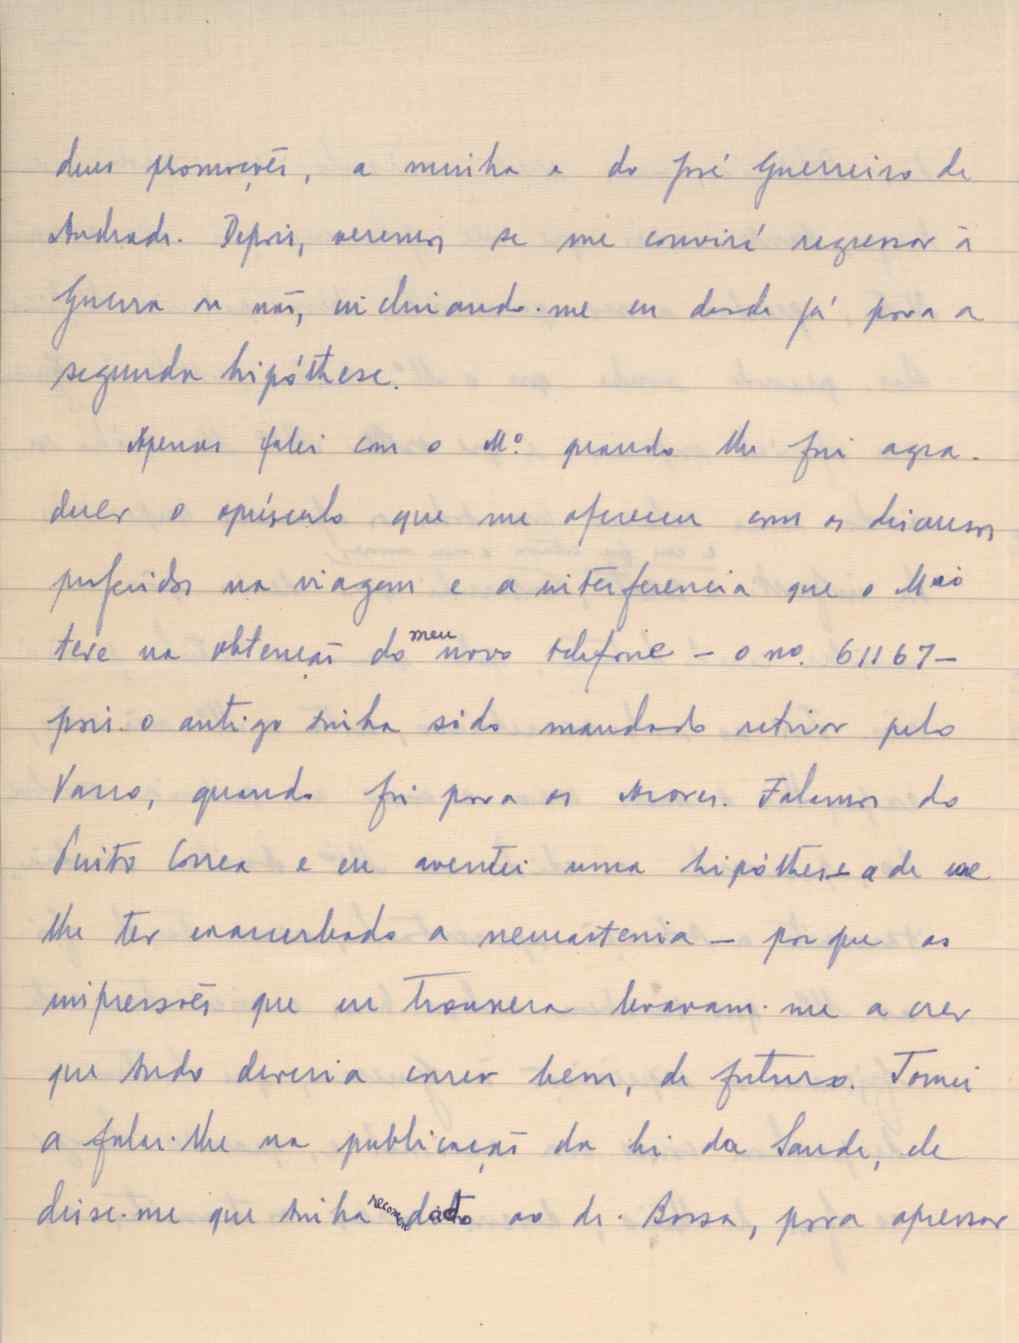 duas promoções, a minha e do José Guerreiro de
Andrade. Depois, veremos se me convirá regressar à
Guerra ou não, inclinando-me eu desde já para a
segunda hipóthese.
Apenas falei com o M.º quando lhe fui agra-
decer o opúsculo que me ofereceu com os discursos
proferidos na viagem e a interferencia que o M.mo
teve na obtenção do meu novo telefone — o no. 61167 —
pois o antigo tinha sido mandado retirar pelo
Vasco, quando foi para os Açores. Falamos do
Pinto Correa e eu aventei uma hipóthese a de se
lhe ter exacerbado a neurastenia — porque as
impressões que eu trouxera levavam-me a crer
que tudo deveria correr bem, de futuro. Tornei
a falar-lhe na publicação da lei da Saude, ele
disse-me que tinha dito ao dr. Bossa, para apressar